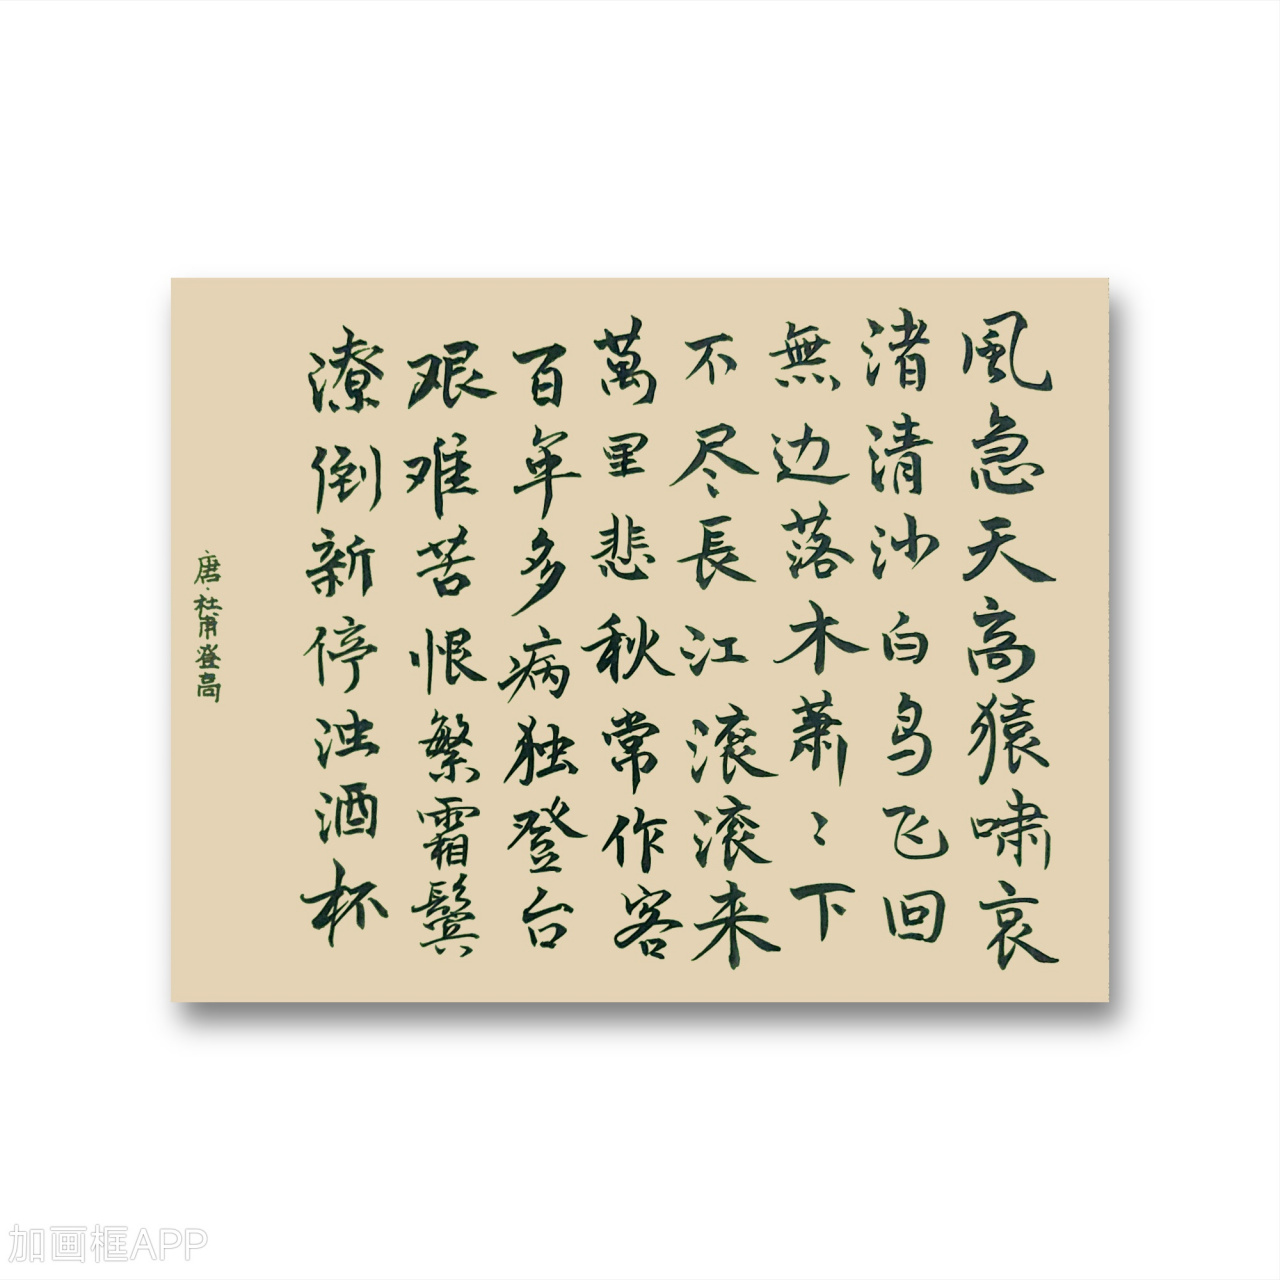 風急天高猿啸哀
渚清沙白鸟飞回
無边落木萧〻下
不尽長江滚滚来
萬里悲秋常作客
百年多病独登台
艰难苦恨繁霜鬓
潦倒新停浊酒杯
唐·杜甫登高
加画框APP